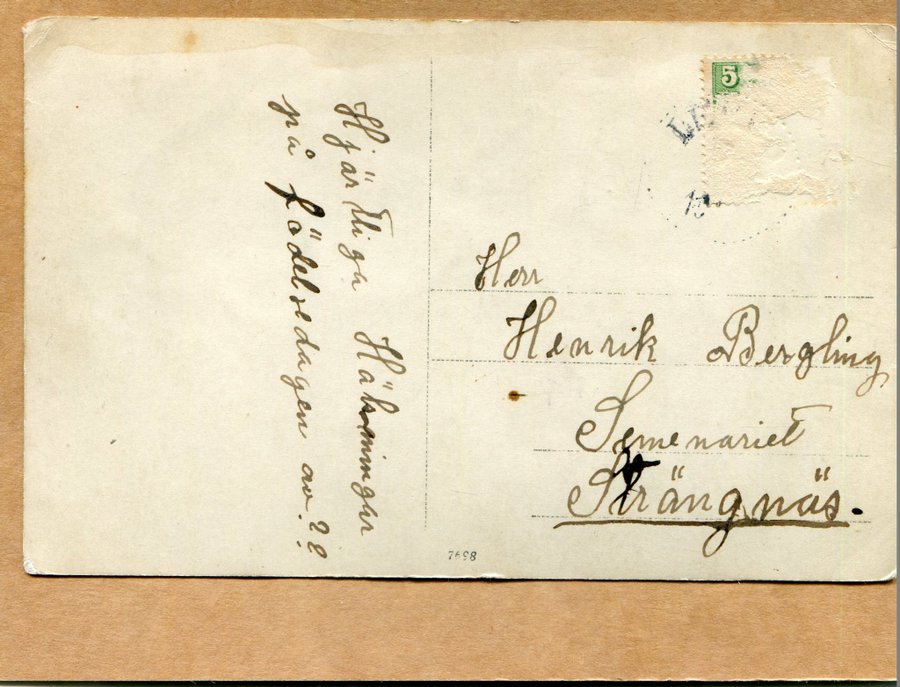 Hjärtliga Hälsningar
på födelsedagen av. ??
5
Herr
Henrik Bergling
Semenariet
Strängnäs.
7698